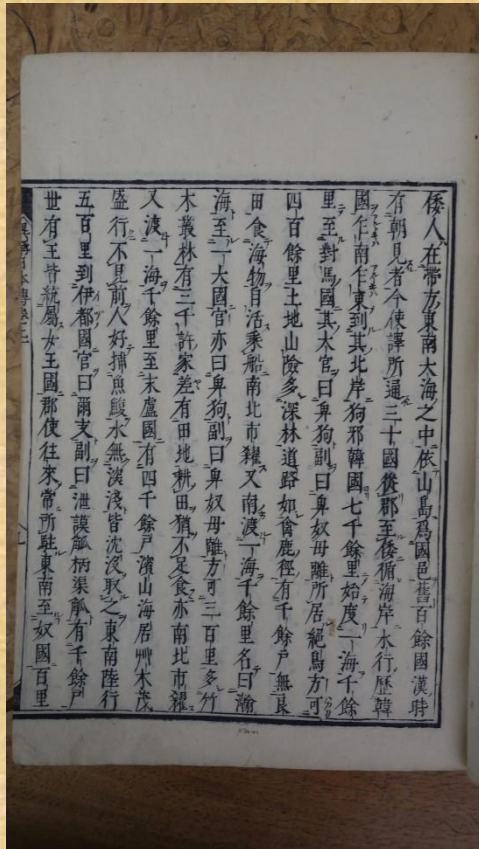 倭人在帶方東南大海之中依山島爲國邑舊百餘國漢時
有朝見者今使譯所通三十國從郡至倭循海岸水行歷韓
國乍南乍東到其北岸狗邪韓國七千餘里始度一海千餘
里至對馬國其大官曰卑狗副曰卑奴母離所居絕島方可
四百餘里土地山險多深林道路如禽鹿徑有千餘戸無良
田食海物自活乘船南北市糴又南渡一海千餘里名曰瀚
海至一大國官亦曰卑狗副曰卑奴母離方可三百里多竹
木叢林有三千許家差有田地耕田猶不足食亦南北市糴
又渡一海千餘里至末盧國有四千餘戸濱山海居艸木茂
盛行不見前人好捕魚鰒水無深淺皆沈沒取之東南陸行
五百里到伊都國官曰爾支副曰泄謨觚柄渠觚有千餘戸
世有王皆統屬女王國郡使往來常所駐東南至奴國百里
異稱日本傳卷上一